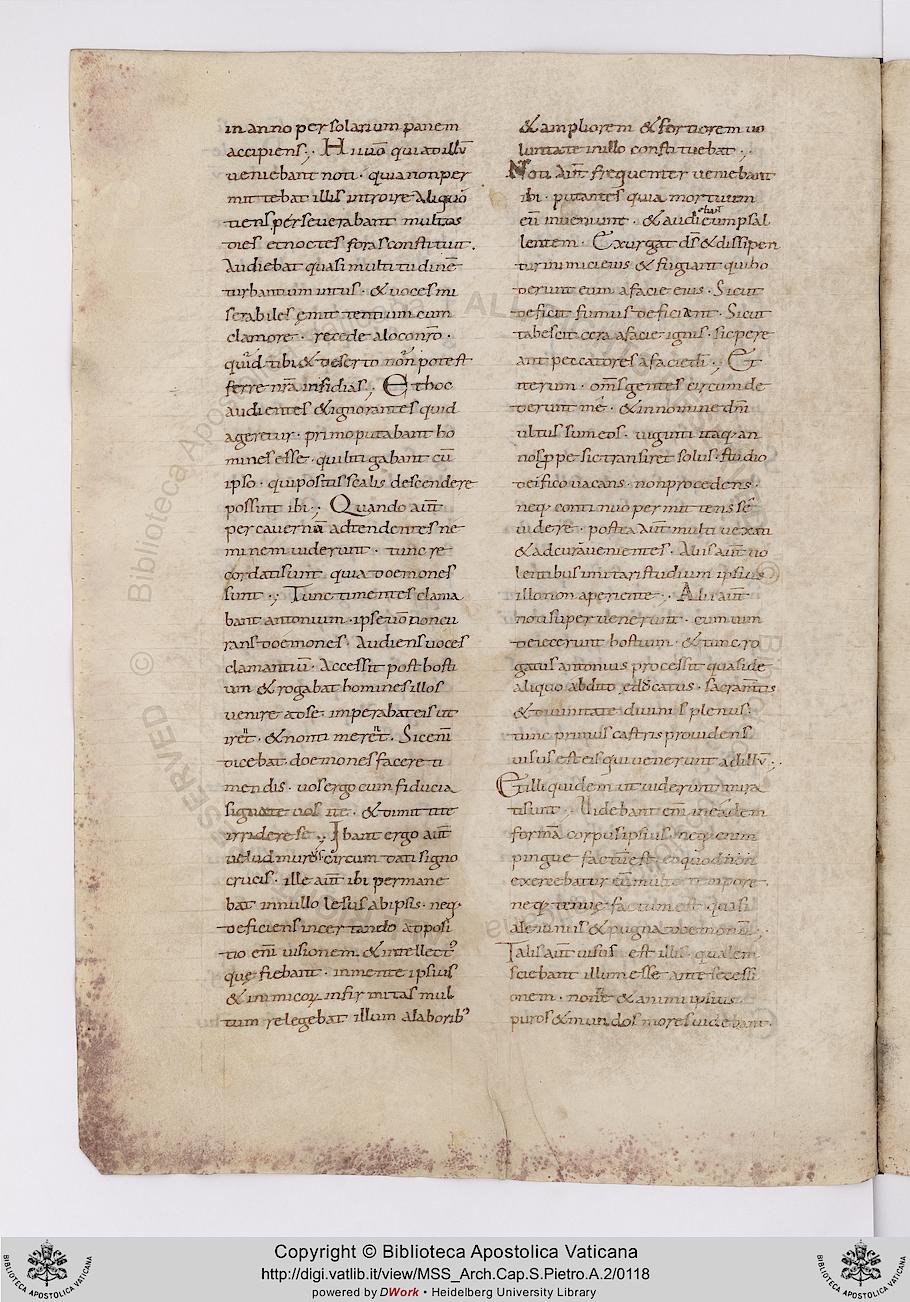 in anno per solarium panem
accipiens ;· Hii uō qui ad illū
ueniebant noti · quia non per
mittebat illis introire Aliquo
tiens perseuerabant multas
dies et noctes foras constituti.
Audiebat quasi multitudinē
turbantium intus · & uoces mi
serabiles ęmittentium cum
clamore · recede a loco nr̄o ·
quid tibi & deserto non potest
ferre nr̄a insidias ; Et hoc
audientes & ignorantes quid
ageretur · primo putabant ho
mines esse · qui litigabant cū
ipso · qui positis scalis descendere
possint ibi ·; Quando aūt
per cauernā adtendentes ne
minem uiderunt · tunc re
cordati sunt quia doemones
sunt ·; Tunc timentes clama
bant antonium · ipse uō non cu
rans doemones · Audiens uoces
clamantiū · Accessit post hosti
um & rogabat homines illos
uenire ad se imperabat eis ut
irent · & non timerent · Sic enī
dicebat doemones facere ti
mendis · uos ergo cum fiducia
signate uos ite · & dimittite
irridere se ·; Ibant ergo aūt
uelud muros circumdati signo
crucis · ille aūt ibi permane
bat in nullo lesus ab ipsis · neq·
deficiens in certando ad posi
tio enī uisionem & intellect᾽
quę fiebant · in mente ipsius
& inimicoꝝ infirmitas mul
tum relegebat illum a laborib᾽
& ampliorem & fortiorem uo
luntate in illo constituebat ·;
Noti Aūt frequenter ueniebant
ibi · putantes quia mortuum
eū inueniunt · & audiebant eum psal
lentem · Exurgat d̄s & dissipen
tur inimici eius & fugiant qui ho
derunt eum a facie eius · Sicut
deficit fumus deficiant · Sicut
tabescit cera a facie ignis · sic pere
ant peccatores a facie dī ·; Et
iterum · om̄s gentes circumde
derunt mē · & in nomine dn̄i
ultus sum eos · uiginti itaq· an
nos ꝓpe sic transiret solus · studio
deifico uacans · non procedens ·
neq· continuo permittens sē
uidere · postea aūt multi uexati
& ad eum uenientes · Aliis aūt uo
lentibus imitari studium ipsius
illo non aperiente ·; Alii aūt
noti superuenerunt · cum uim
deiecerunt hostium · & tunc ro
gatus antonius processit quasi de
aliquo abdito ędocatus · sacramtis
& diuinitate diuinis plenus ·
tunc primus castris prouidens
uisus est eis qui uenerunt ad illū ·;
Et illi quidem ut uiderunt mira
ti sunt ·; Uidebant enī in eadem
formā corpus ipsius · neq· enim
pingue factū est · eo quod non
exercebatur cū multo tempore ·
neq· tenue factum est · quasi
a ieiuniis & pugna doemonū ·;
Talis aūt uisus est illis · qualem
sciebant illum esse ante secessi
onem · nonne & animi ipsius
puros & mundos mores uidebant ·
Copyright © Biblioteca Apostolica Vaticana
http://digi.vatlib.it/view/MSS_Arch.Cap.S.Pietro.A.2/0118
powered by DWork • Heidelberg University Library